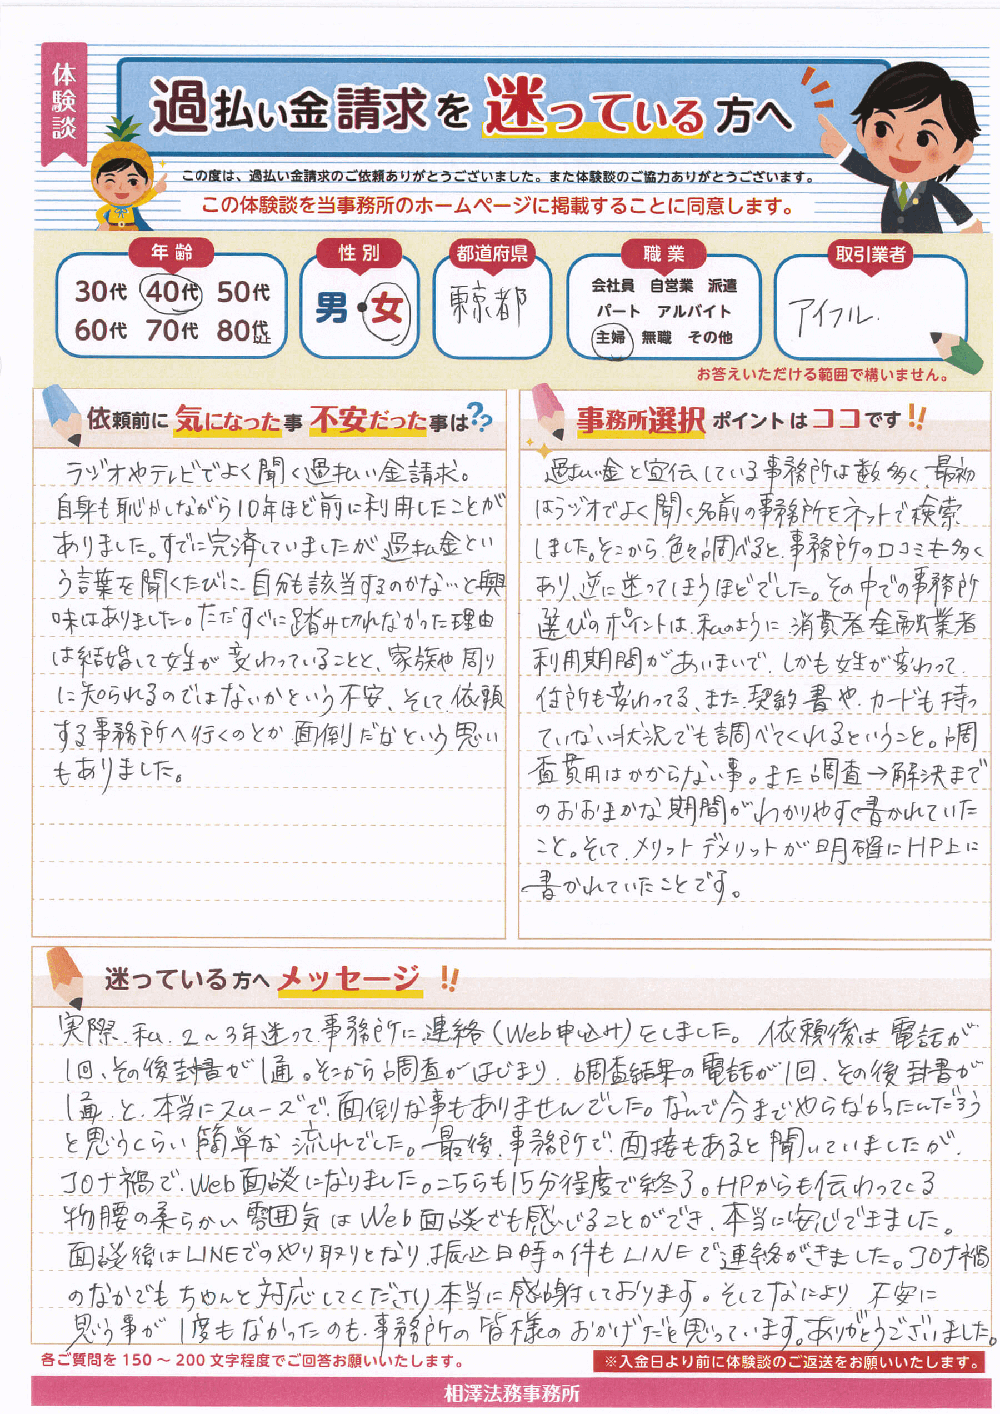 体験談
過払い金請求を迷っている方へ
この度は、過払い金請求のご依頼ありがとうございました。また体験談のご協力ありがとうございます。
この体験談を当事務所のホームページに掲載することに同意します。
年齢
30代 40代 50代
60代 70代 80代以上
性別
男・女
都道府県
東京都
職業
会社員 自営業 派遣
パート アルバイト
主婦 無職 その他
取引業者
アイフル.
お答えいただける範囲で構いません。
依頼前に気になった事不安だった事は??
ラジオやテレビでよく聞く過払い金請求。
自身も恥かしながら10年ほど前に利用したことが
ありました。すでに完済していましたが過払金とい
う言葉を聞くたびに、自分も該当するのかな…と興
味はありました。ただすぐに踏み切れなかった理由
は結婚して女生が変わっていることと、家族や周り
に知られるのではないかという不安、そして依頼
する事務所へ行くのとか面倒だなという思い
もありました。
事務所選択ポイントはココです!!
過払い金と宣伝している事務所は数多く、最初
はラジオでよく聞く名前の事務所をネットで検索
しました。そこから色々調べると、事務所の口コミも多く
あり、逆に迷ってしまうほどでした。その中での事務所
選びのポイントは、私のように消費者金融業者
利用期間があいまいで、しかも女生が変わって、
住所も変わってる、また、契約書や、カードも持っ
ていない状況でも調べてくれるということ。調
査費用はかからない事。また調査→解決まで
のおおまかな期間がわかりやすく書かれていた
こと。そして、メリットデメリットが明確にHP上に
書かれていたことです。
迷っている方へメッセージ!!
実際、私、2〜3年迷って事務所に連絡(Web申込み)をしました。依頼後は電話が
1回、その後封書が1通。そこから調査がはじまり、調査結果の電話が1回、その後封書が
1通、と、本当にスムーズで、面倒な事もありませんでした。なんで今までやらなかったんだろう
と思うくらい簡単な流れでした。最後、事務所で面接もあると聞いていましたが、
コロナ禍で、Web面談になりました。こちらも15分程度で終了。HPからも伝わってくる
物腰の柔らかい雰囲気はWeb面談でも感じることができ、本当に安心できました。
面談後はLINEでのやり取りとなり、振込日時の件もLINEで連絡がきました。コロナ禍
のなかでもちゃんと対応してくださり本当に感謝しております。そしてなにより不安に
思う事が1度もなかったのも、事務所の皆様のおかげだと思っています。ありがとうございました。
各ご質問を150〜200文字程度でご回答お願いいたします。
※入金日より前に体験談のご返送をお願いいたします。
相澤法務事務所